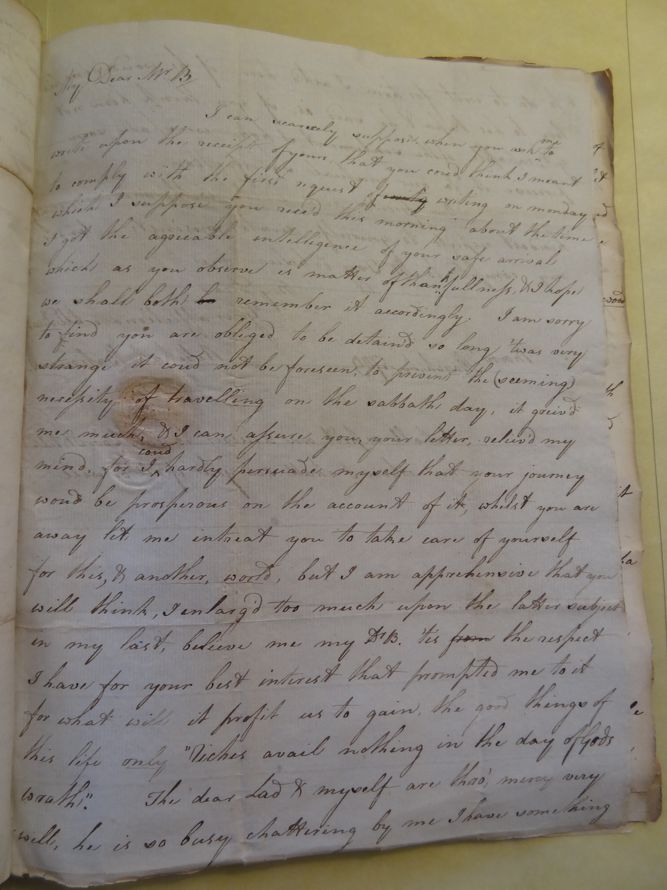 My Dear Mr B
I can scarcely suppose when you wish me to
write upon the receipt of yours that you coud think I meant
to comply with the first request of writing on monday
which I suppose you rec'd this morning about the time
I got the agreeable intelligence of your safe arrival
which as you observe is matter of thankfullness, & I hope
we shall both remember it accordingly. I am sorry
to find you are obliged to be detain'd so long 'twas very
strange it coud not be foreseen, to prevent the (seeming)
necessity of travelling on the sabbath day, it griev'd
me much, & I can assure you, your letter, reliev'd my
mind, for I coud hardly persuade myself that your journey
woud be prosperous on the account of it, whilst you are
away let me intreat you to take care of yourself
for this, & another, world, but I am apprehensive that you
will think, I enlarg'd too much upon the latter subject
in my last, believe me my Dr B. 'tis from the respect
I have for your best interest that prompted me to it
for what will it profit us to gain, the good things of
this life only "Riches avail nothing in the day of Gods
wrath". The dear Lad & myself are thro' mercy very
well, he is so busy chattering by me I have something